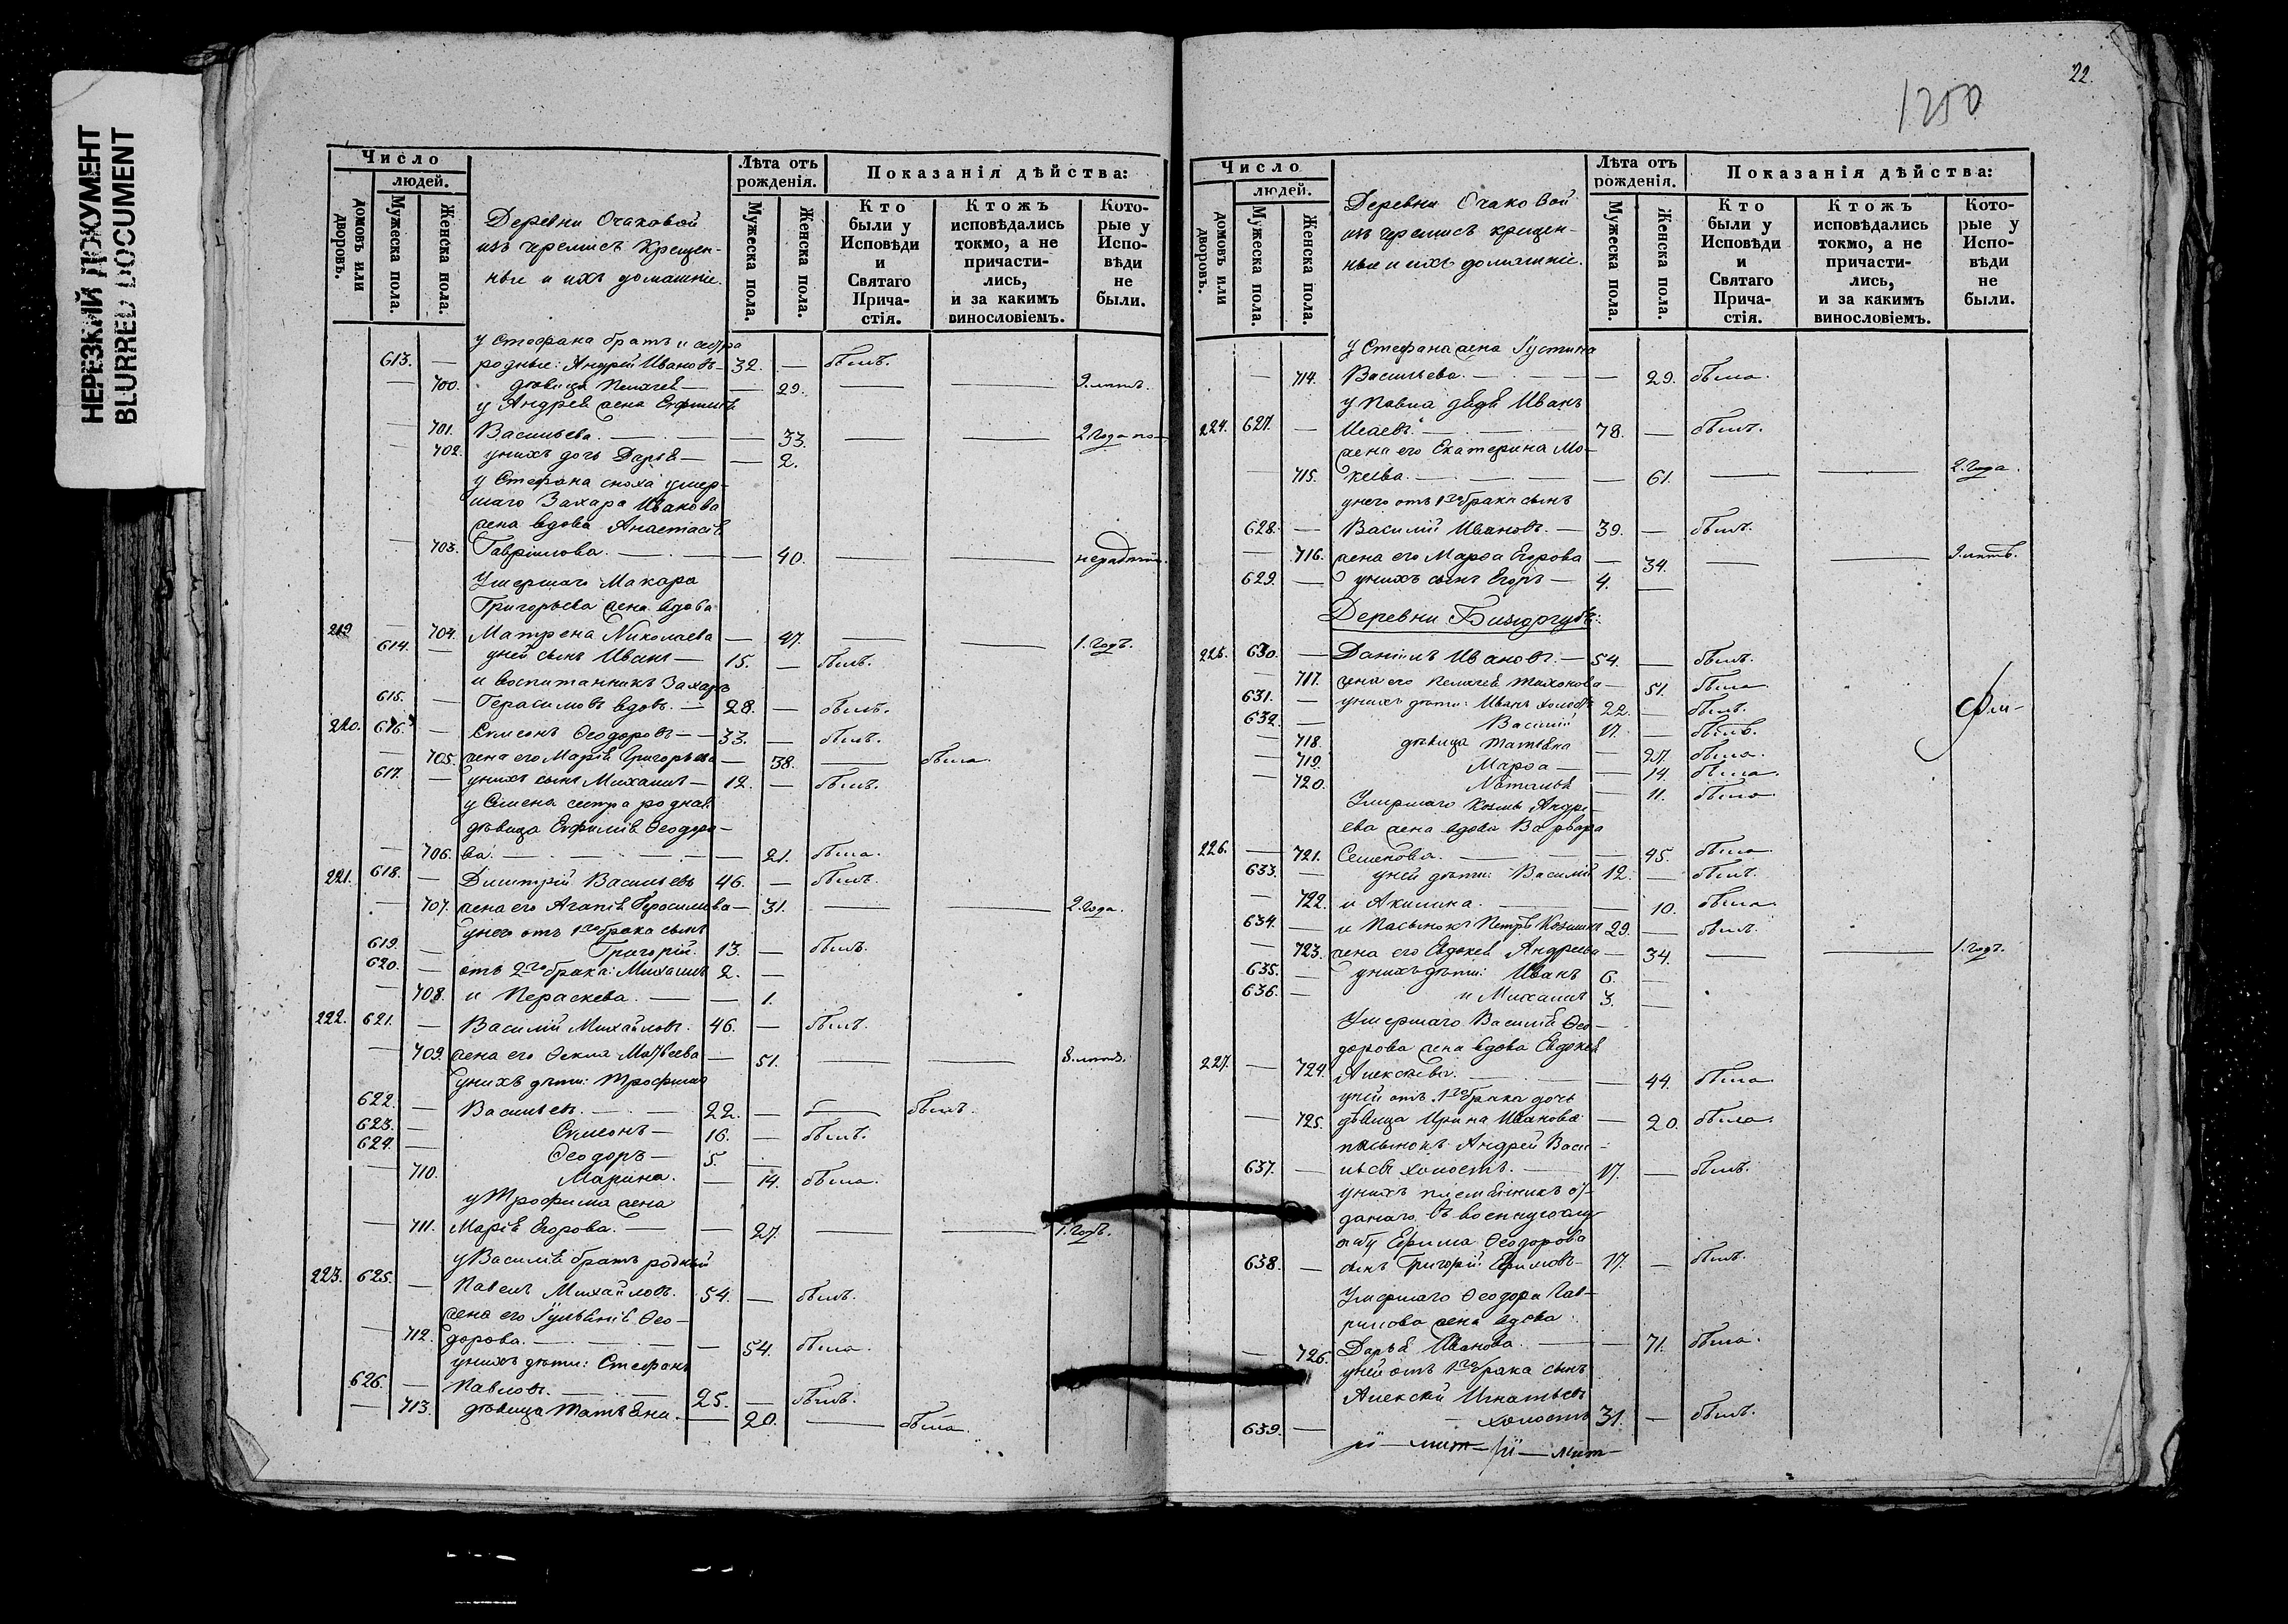 НЕРЕЗКИЙ ДОКУМЕНТ
BLURRED DOCUMENT
Число
людей.
домовъ или дворовъ.
Мужеска пола.
Женска пола.
Деревни Очаковой
изъ черемисъ крещен-
ные и ихъ домашніе.
Лѣта отъ рожденія.
Мужеска пола.
Женска пола.
Показанія дѣйства:
Кто были у Исповѣди и Святаго Прича-стія.
Ктожъ исповѣдались токмо, а не причасти-лись, и за какимъ винословіемъ.
Кото-рые у Испо-вѣди не были.
у Стефана братъ и сестра
613. — родные: Андрей Ивановъ — 32. — былъ.
— 700. дѣвица Пелагея — — 29. — — 9. лѣтъ.
у Андрея жена Евфимія
— 701. Васильева. — — 33. — — 2 года по
— 702. у нихъ дочь Дарья — — 2.
у Стефана сноха умер-
шаго Захара Иванова
жена вдова Анастасія
— 703. Гавріилова. — — 40. — —
Умершаго Макара
Григорьева жена вдова
219 — 704. Матрена Николаева — 47. — — 1. годъ.
614. — у ней сынъ Иванъ — 15. — былъ.
и воспитанникъ Захаръ
615. — Герасимовъ вдовъ. — 28. — былъ.
220. 616. — Симеонъ Ѳеодоровъ — 33. — былъ.
— 705. жена его Марія Григорьева — 38. — была.
617. — у нихъ сынъ Михаилъ — 12. — былъ.
у Симена сестра родная
дѣвица Евфимія Ѳеодоро-
— 706. ва. — — 21. была.
221. 618. — Димитрій Васильевъ 46. — былъ.
— 707. жена его Агапія Герасимова — 31. — — 2. года.
у него отъ 1го брака сынъ
619. — Григорій. 13. — былъ.
620. — отъ 2го брака: Михаилъ 2. —
— 708. и Параскева. — — 1.
222. 621. — Василій Михайловъ. 46. — былъ.
— 709. жена его Ѳекла Матвеева — 51. — — 8. лѣтъ.
у нихъ дѣти: Трофимъ
622. — Васильевъ. — 22. — — былъ.
623. — Симеонъ — 16. — былъ.
624. — Ѳеодоръ — 5. —
— 710. Марина. — 14. была.
у Трофима жена
— 711. Марія Егорова. — — 27. — — 1. годъ.
у Василія братъ родный
223. 625. — Павелъ Михайловъ. 54. — былъ.
жена его Гульянія Ѳео-
— 712. дорова. — — 54. была.
у нихъ дѣти: Стефанъ
626. — Павловъ. — 25. — былъ.
— 713. дѣвица Татьяна. — 20. — была.
22.
1250
Число
людей.
домовъ или дворовъ.
Мужеска пола.
Женска пола.
Деревни Очаковой
изъ черемисъ крещен-
ные и ихъ домашніе.
Лѣта отъ рожденія.
Мужеска пола.
Женска пола.
Показанія дѣйства:
Кто были у Исповѣди и Святаго Прича-стія.
Ктожъ исповѣдались токмо, а не причасти-лись, и за какимъ винословіемъ.
Кото-рые у Испо-вѣди не были.
у Стефана жена Густина
— 714. Васильева. — — 29. была.
у Павла дядя Иванъ
224. 627. — Исаевъ. — 78. — былъ.
жена его Екатерина Мо-
— 715. кеева. — — 61. — — 2. года.
у него отъ 1го брака сынъ
628. — Василій Ивановъ. — 39. — былъ.
— 716. жена его Марѳа Егорова — 34. — — 9. лѣтъ.
629. — у нихъ сынъ Егоръ — 4. —
Деревни
225. 630. — Даніилъ Ивановъ. — 54. — былъ.
— 717. жена его Пелагея Тихонова — 51. была
631. — у нихъ дѣти: Иванъ холостъ 22. — былъ.
632. — Василій 17. — былъ.
— 718. дѣвица Татьяна — 27. была.
— 719. Марѳа — — 14. была.
— 720. Наталья — 11. была.
Умершаго Козмы Андре-
ева жена вдова Варвара
226. — 721. Семенова. — — 45. была
633. — у ней дѣти: Василій 12. — былъ.
— 722. и Акилина. — — 10. была.
634. — и пасынокъ Петръ Козминъ 29. — былъ.
— 723. жена его Евдокея Андреева — 34. — — 1. годъ.
635. — у нихъ дѣти: Иванъ 6. —
636. — и Михаилъ 3. —
Умершаго Василія Ѳео-
дорова жена вдова Евдокея
227. — 724. Алексѣева. — — 44. была
у ней отъ 1го брака дочь
— 725. дѣвица Ирина Иванова — 20. была.
пасынокъ Андрей Васи-
637. — льевъ холостъ. — 17. — былъ.
у нихъ племянникъ от-
даннаго въ военную слу-
жбу Ефима Ѳеодорова
638. — сынъ Григорій Ефимовъ — 17. — былъ.
Умершаго Ѳеодора Гав-
рилова жена вдова
— 726. Дарья Иванова. — — 71. была.
у ней отъ 1го брака сынъ
Алексѣй Игнатьевъ
639. — холостъ 31. — былъ.